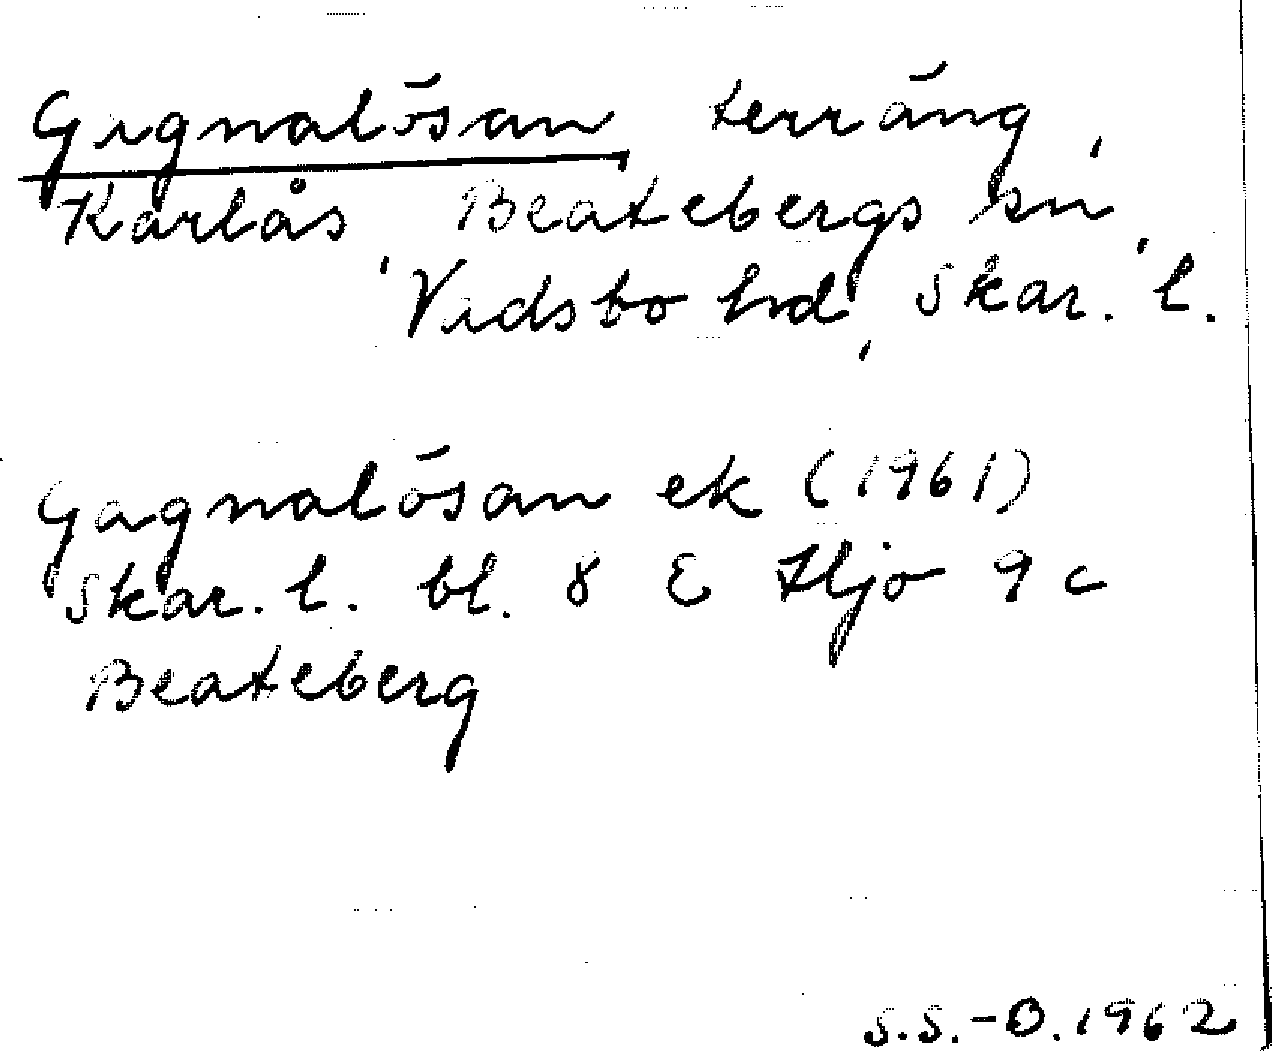 Gignalösan terräng,
Karlås, Beatebergs sn,
Vadsbo hd, Skar. l.
Gagnalösan ek (1961)
Skar. l. bl. 8 E Hjo 9 c
Beateberg
S.S.-O. 1962